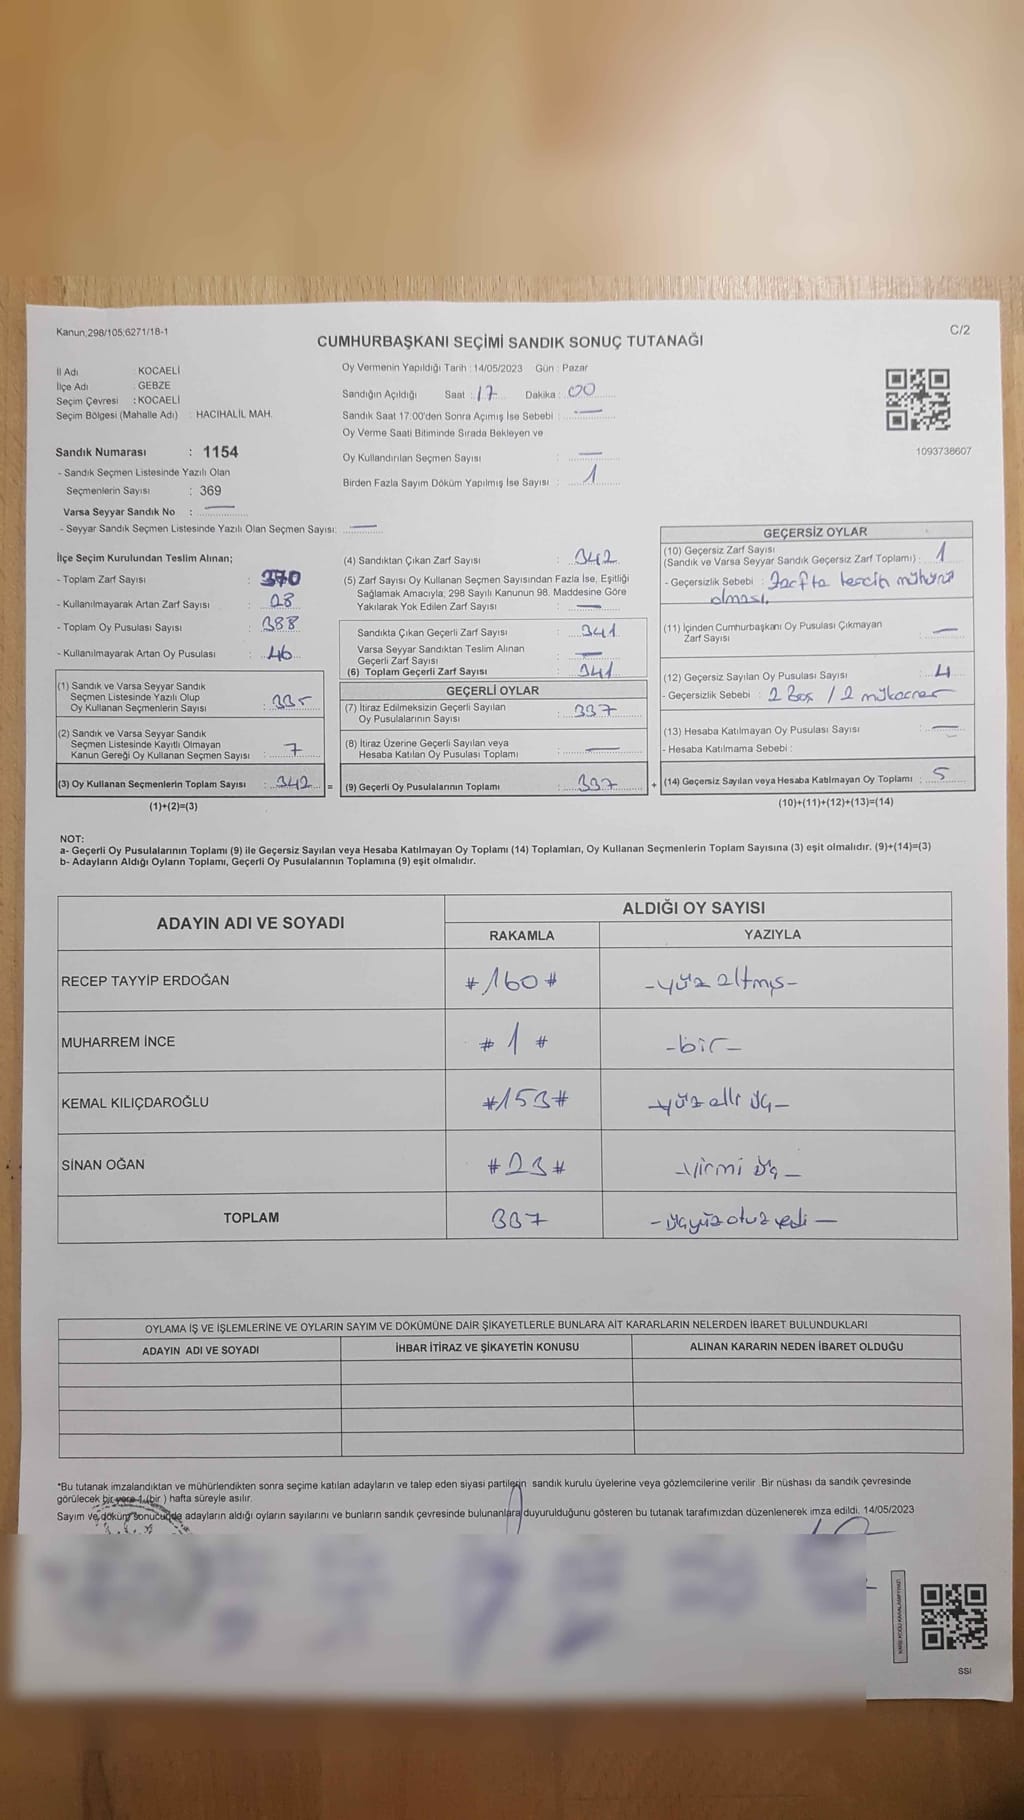 Kanun,298/105,6271/18-1
C/2
CUMHURBAŞKANI SEÇİMİ SANDIK SONUÇ TUTANAĞI
İl Adı : KOCAELİ
İlçe Adı : GEBZE
Seçim Çevresi : KOCAELİ
Seçim Bölgesi (Mahalle Adı) : HACIHALİL MAH.
Sandık Numarası : 1154
- Sandık Seçmen Listesinde Yazılı Olan
Seçmenlerin Sayısı : 369
Varsa Seyyar Sandık No : —
- Seyyar Sandık Seçmen Listesinde Yazılı Olan Seçmen Sayısı: —
Oy Vermenin Yapıldığı Tarih : 14/05/2023 Gün : Pazar
Sandığın Açıldığı Saat : 17 Dakika : 00
Sandık Saat 17:00'den Sonra Açımış İse Sebebi : —
Oy Verme Saati Bitiminde Sırada Bekleyen ve
Oy Kullandırılan Seçmen Sayısı : —
Birden Fazla Sayım Döküm Yapılmış İse Sayısı : 1
1093738607
İlçe Seçim Kurulundan Teslim Alınan;
- Toplam Zarf Sayısı : 370
- Kullanılmayarak Artan Zarf Sayısı : 28
- Toplam Oy Pusulası Sayısı : 388
- Kullanılmayarak Artan Oy Pusulası : 46
(1) Sandık ve Varsa Seyyar Sandık
Seçmen Listesinde Yazılı Olup
Oy Kullanan Seçmenlerin Sayısı : 335
(2) Sandık ve Varsa Seyyar Sandık
Seçmen Listesinde Kayıtlı Olmayan
Kanun Gereği Oy Kullanan Seçmen Sayısı : 7
(3) Oy Kullanan Seçmenlerin Toplam Sayısı : 342 =
(1)+(2)=(3)
(4) Sandıktan Çıkan Zarf Sayısı : 342
(5) Zarf Sayısı Oy Kullanan Seçmen Sayısından Fazla İse, Eşitliği
Sağlamak Amacıyla, 298 Sayılı Kanunun 98. Maddesine Göre
Yakılarak Yok Edilen Zarf Sayısı : —
Sandıkta Çıkan Geçerli Zarf Sayısı : 341
Varsa Seyyar Sandıktan Teslim Alınan
Geçerli Zarf Sayısı : —
(6) Toplam Geçerli Zarf Sayısı : 341
GEÇERLİ OYLAR
(7) İtiraz Edilmeksizin Geçerli Sayılan
Oy Pusulalarının Sayısı : 337
(8) İtiraz Üzerine Geçerli Sayılan veya
Hesaba Katılan Oy Pusulası Toplamı : —
(9) Geçerli Oy Pusulalarının Toplamı : 337 +
GEÇERSİZ OYLAR
(10) Geçersiz Zarf Sayısı
(Sandık ve Varsa Seyyar Sandık Geçersiz Zarf Toplamı) : 1
- Geçersizlik Sebebi : Zarfta tercih mührü
olması.
(11) İçinden Cumhurbaşkanı Oy Pusulası Çıkmayan
Zarf Sayısı : —
(12) Geçersiz Sayılan Oy Pusulası Sayısı : 4
- Geçersizlik Sebebi : 2 Boş / 2 mükerrer
(13) Hesaba Katılmayan Oy Pusulası Sayısı : —
- Hesaba Katılmama Sebebi :
(14) Geçersiz Sayılan veya Hesaba Katılmayan Oy Toplamı : 5
(10)+(11)+(12)+(13)=(14)
NOT:
a- Geçerli Oy Pusulalarının Toplamı (9) ile Geçersiz Sayılan veya Hesaba Katılmayan Oy Toplamı (14) Toplamları, Oy Kullanan Seçmenlerin Toplam Sayısına (3) eşit olmalıdır. (9)+(14)=(3)
b- Adayların Aldığı Oyların Toplamı, Geçerli Oy Pusulalarının Toplamına (9) eşit olmalıdır.
ADAYIN ADI VE SOYADI
ALDIĞI OY SAYISI
RAKAMLA YAZIYLA
RECEP TAYYİP ERDOĞAN #160# -yüz altmış-
MUHARREM İNCE #1# -bir-
KEMAL KILIÇDAROĞLU #153# -yüz elli üç-
SİNAN OĞAN #23# -yirmi üç-
TOPLAM 337 -üçyüz otuz yedi-
OYLAMA İŞ VE İŞLEMLERİNE VE OYLARIN SAYIM VE DÖKÜMÜNE DAİR ŞİKAYETLERLE BUNLARA AİT KARARLARIN NELERDEN İBARET BULUNDUKLARI
ADAYIN ADI VE SOYADI İHBAR İTİRAZ VE ŞİKAYETİN KONUSU ALINAN KARARIN NEDEN İBARET OLDUĞU
*Bu tutanak imzalandıktan ve mühürlendikten sonra seçime katılan adayların ve talep eden siyasi partilerin sandık kurulu üyelerine veya gözlemcilerine verilir. Bir nüshası da sandık çevresinde
görülecek bir yere 1 (bir ) hafta süreyle asılır.
Sayım ve döküm sonucunda adayların aldığı oyların sayılarını ve bunların sandık çevresinde bulunanlara duyurulduğunu gösteren bu tutanak tarafımızdan düzenlenerek imza edildi. 14/05/2023
SSI